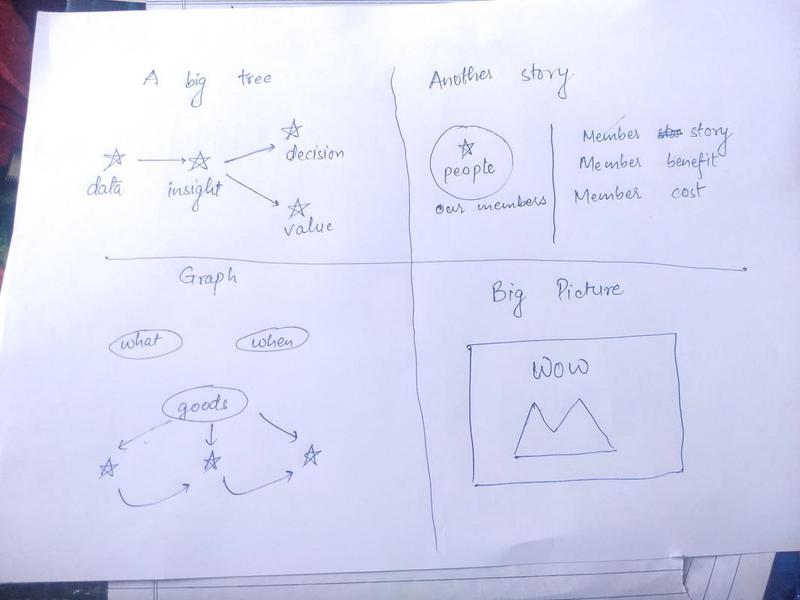 A big tree
data
insight
decision
value
Another story
people
our members
Member story
Member benefit
Member cost
Graph
what
when
goods
Big Picture
WOW